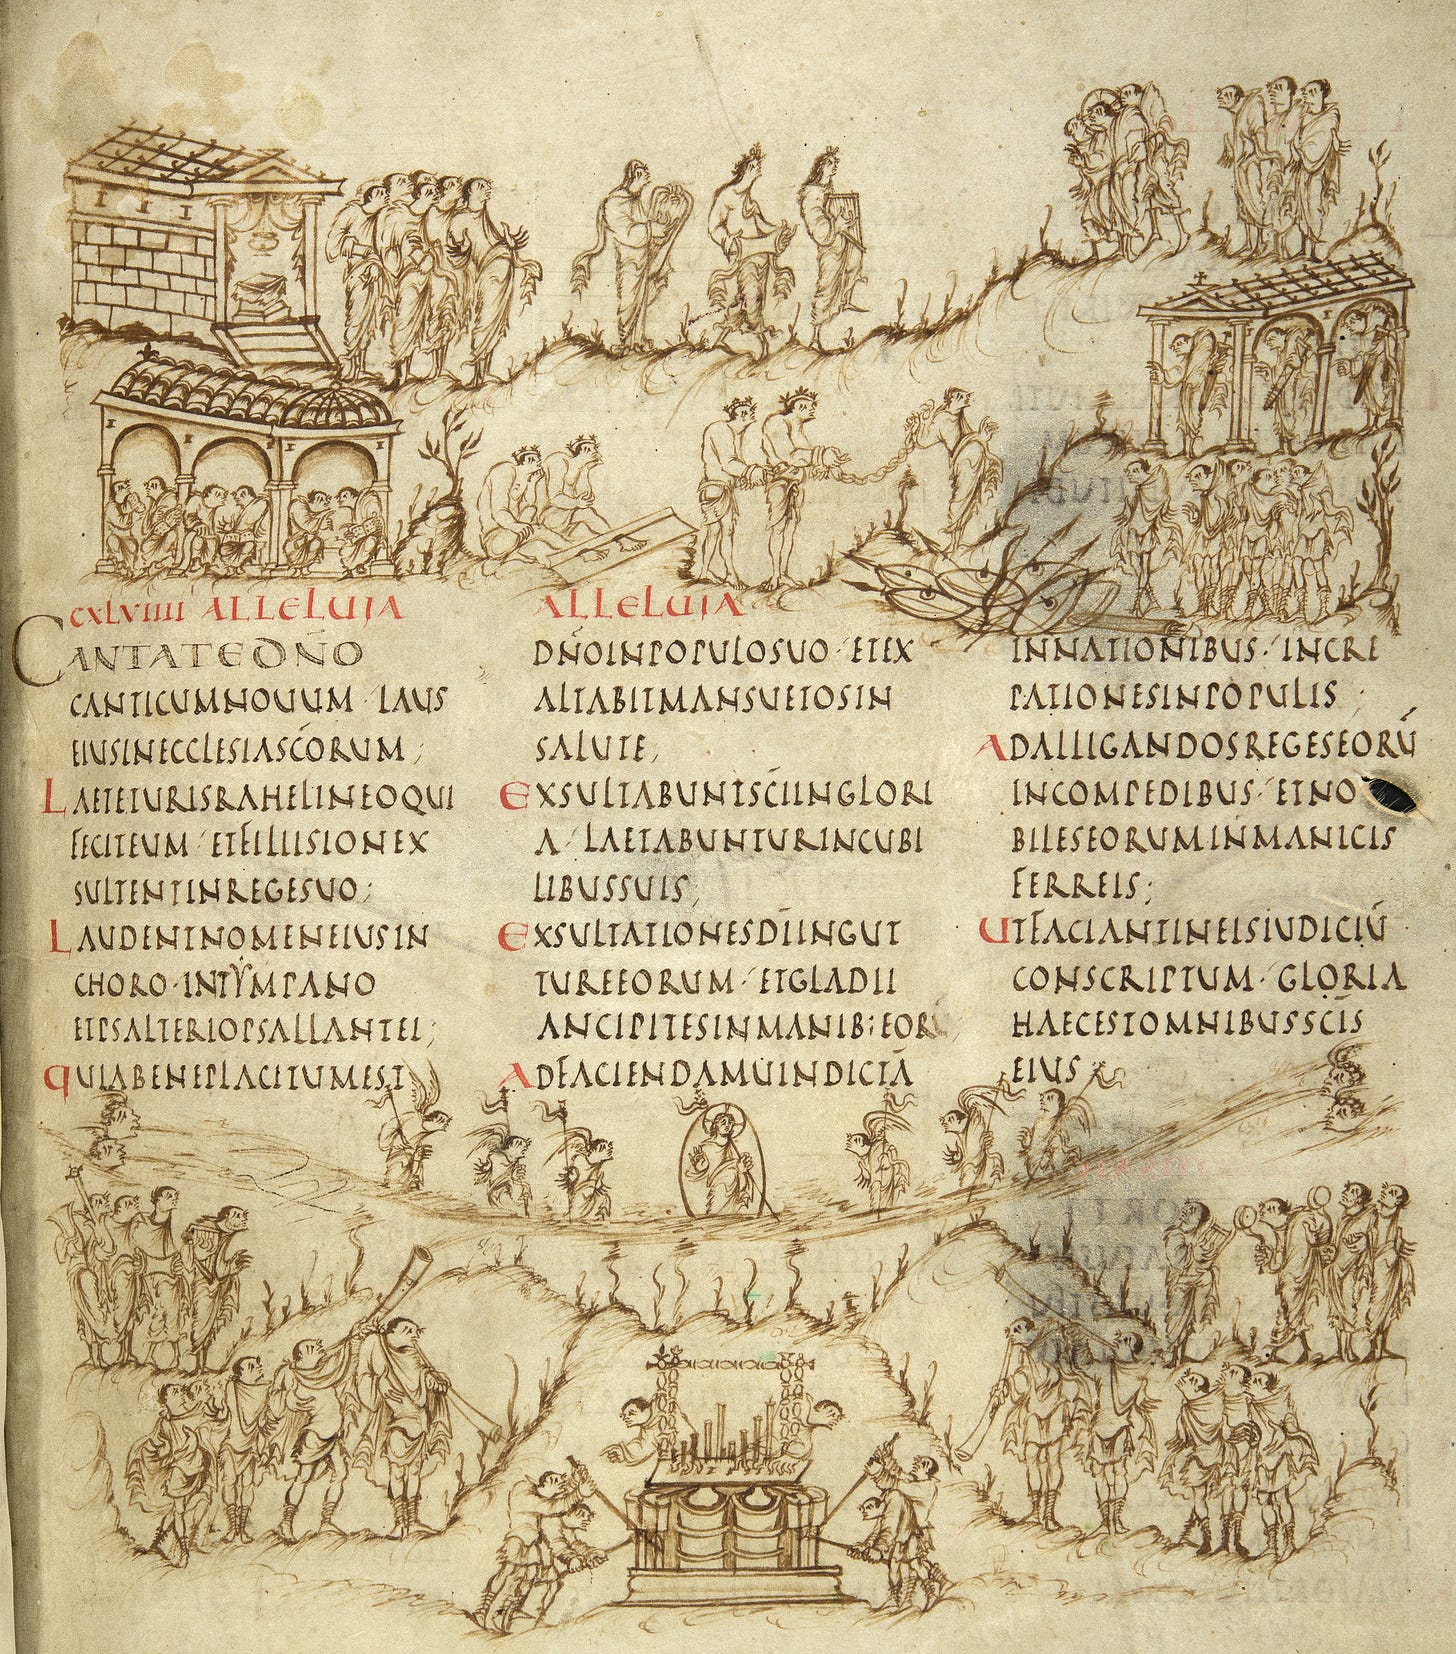 CXLVIIII ALLELUIA
CANTATE DÑO
CANTICUMNOUUM · LAUS
EIUSINECCLESIASC̄ORUM;
LAETETURISRAHELINEOQUI
FECITEUM · ETFILIISIONEX
SULTENTINREGESUO;
LAUDENTNOMENEIUSIN
CHORO · INTYMPANO
ETPSALTERIOPSALLANTEI;
QUIABENEPLACITUMEST
ALLELUIA
DÑOINPOPULOSUO · ETEX
ALTABITMANSUETOSIN
SALUTE;
EXSULTABUNTSC̄IINGLORI
A · LAETABUNTURINCUBI
LIBUSSUIS;
EXSULTATIONESDĪINGUT
TUREEORUM · ETGLADII
ANCIPITESINMANIB;EORŪ
ADFACIENDAMUINDICTĀ
INNATIONIBUS · INCRE
PATIONESINPOPULIS;
ADALLIGANDOSREGESEORŪ
INCOMPEDIBUS · ETNO
BILESEORUMINMANICIS
FERREIS;
UTFACIANTINEISIUDICIŪ
CONSCRIPTUM · GLORIA
HAECESTOMNIBUSSC̄IS
EIUS